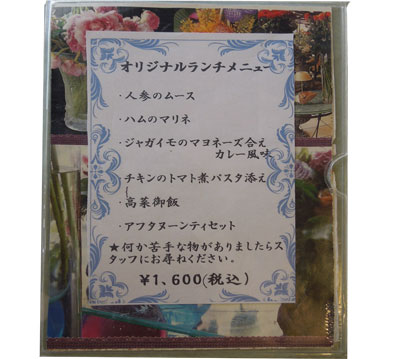 オリジナルランチメニュー
・人参のムース
・ハムのマリネ
・ジャガイモのマヨネーズ合え
カレー風味
・チキンのトマト煮パスタ添え
・高菜御飯
・アフタヌーンティセット
★何か苦手な物がありましたらス
タッフにお尋ねください。
¥1,600(税込)